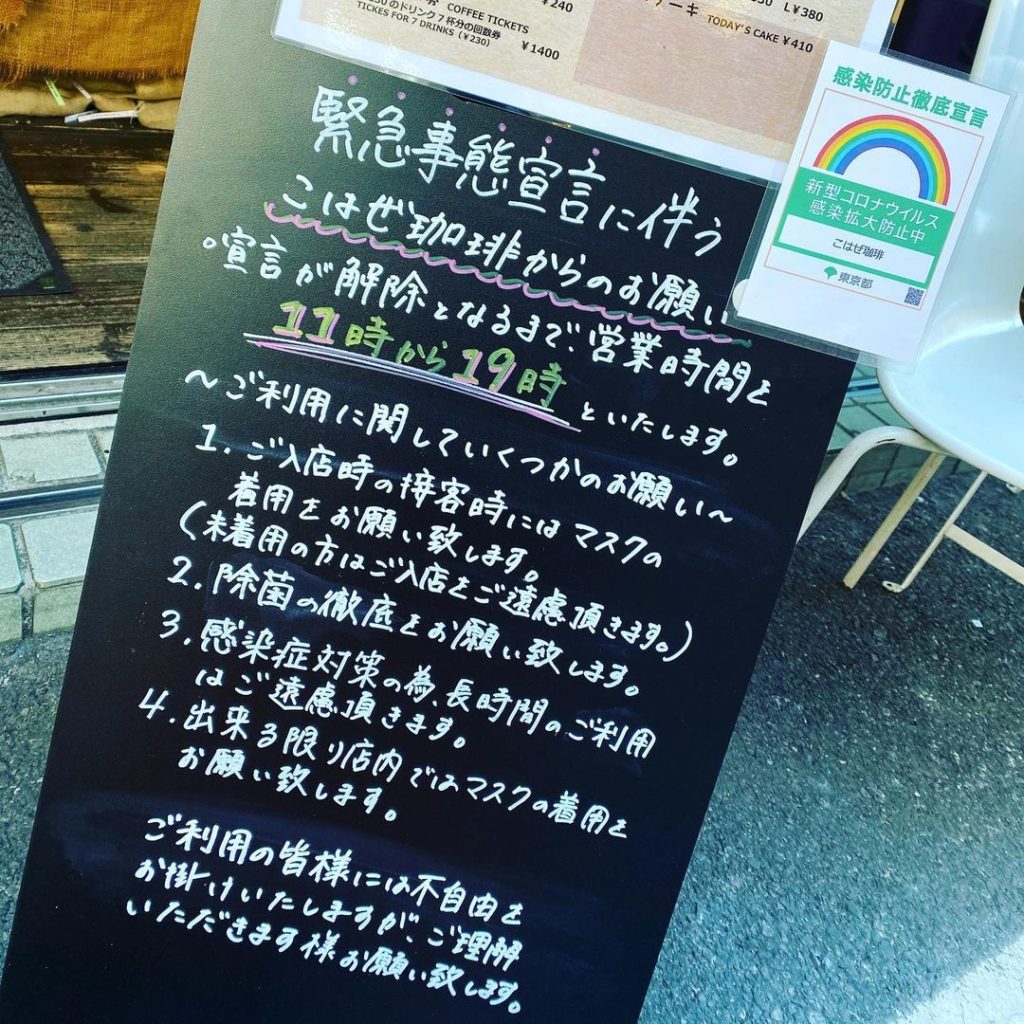 COFFEE TICKETS ¥240
230のドリンク7杯分の回数券
TICKETS FOR 7 DRINKS(¥230) ¥1400
L¥380
ーキ TODAY'S CAKE ¥410
感染防止徹底宣言
新型コロナウイルス
感染拡大防止中
こはぜ珈琲
東京都
緊急事態宣言に伴う
こはぜ珈琲からのお願い
。宣言が解除となるまで、営業時間を
11時から19時といたします。
～ご利用に関していくつかのお願い～
1.ご入店時の接客時にはマスクの
着用をお願い致します。
(未着用の方はご入店をご遠慮頂きます。)
2.除菌の徹底をお願い致します。
3.感染症対策の為、長時間のご利用
はご遠慮頂きます。
4.出来る限り店内ではマスクの着用を
お願い致します。
ご利用の皆様には不自由を
お掛けいたしますが、ご理解
いただきます様お願い致します。